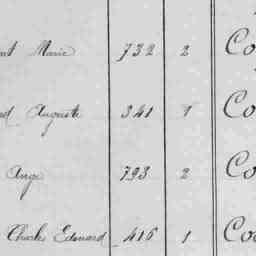 Marie 732 2 Co
Auguste 341 1 Co
Ange 793 2 Co
Charles Edouard 416 1 Coo